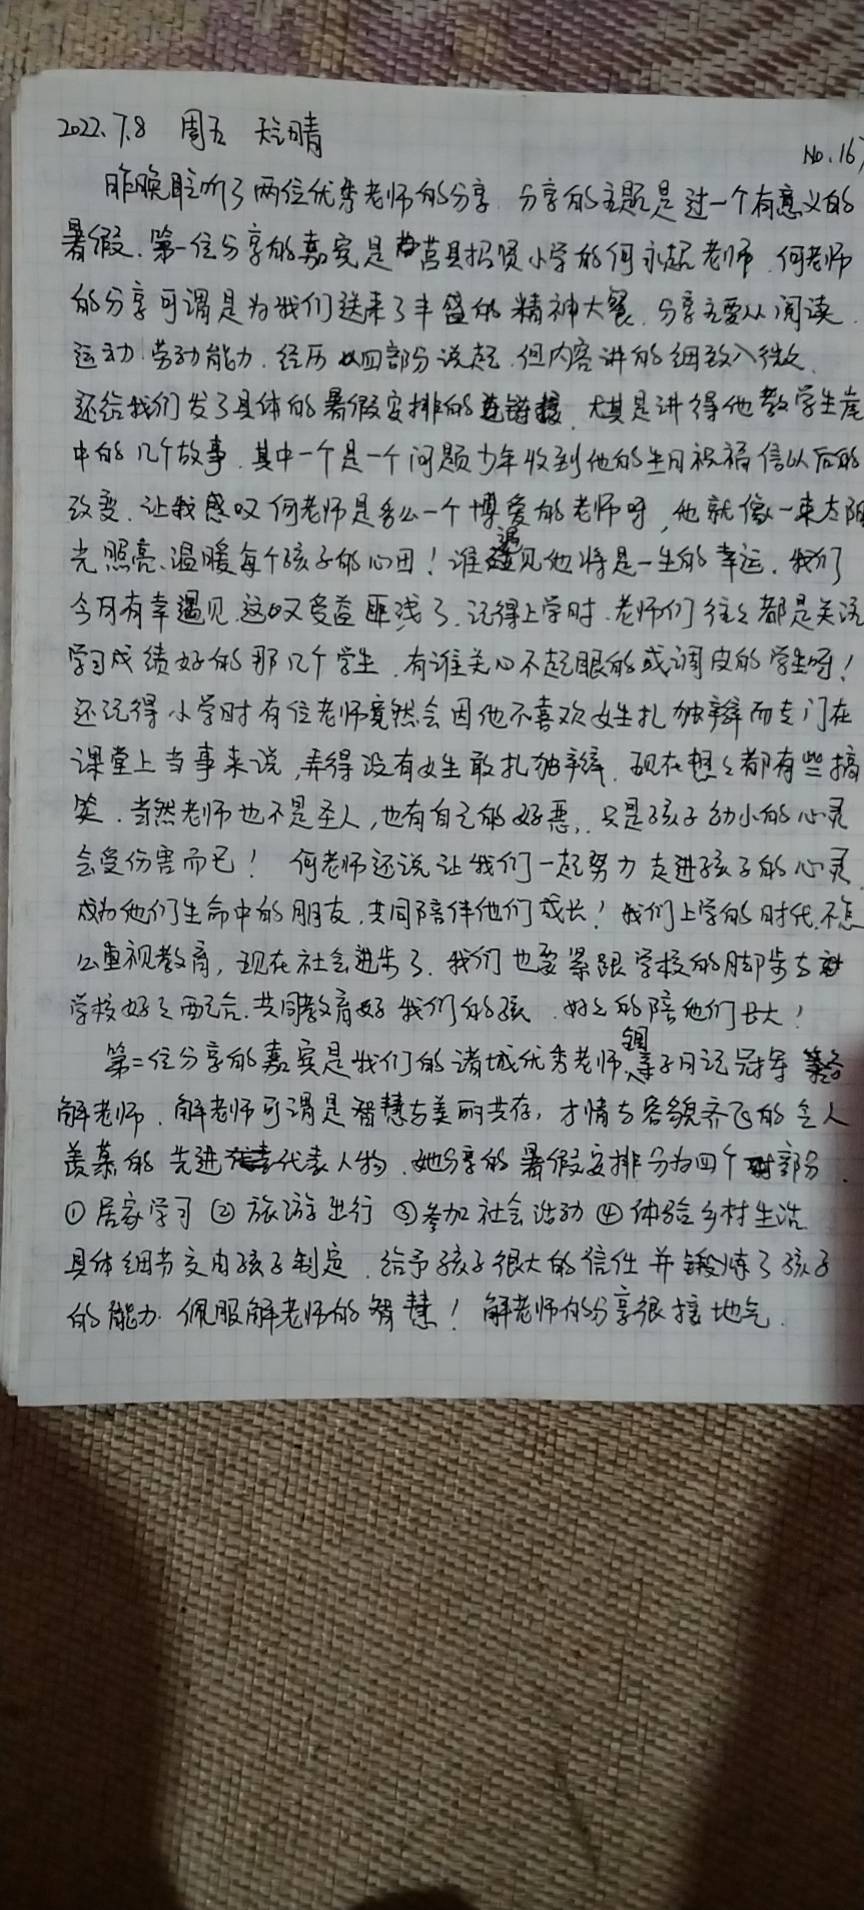 2022.7.8 周五 天气晴
No.167
昨晚聆听了两位优秀老师的分享.分享的主题是过一个有意义的
暑假.第一位分享的嘉宾是莒县招贤小学的何永起老师.何老师
的分享可谓是为我们送来了丰盛的精神大餐.分享主要从阅读.
运动.劳动能力.经历四部分说起.但内容讲的细致入微.
还给我们发了具体的暑假安排的链接.尤其是讲得他教学生涯
中的几个故事.其中一个是一个问题少年收到他的生日祝福信以后的
改变.让我感叹何老师是多么一个博爱的老师呀,他就像一束太阳
光照亮、温暖每个孩子的心田!谁遇见他将是一生的幸运.我们
今日有幸遇见.这叹受益匪浅了.记得上学时.老师们往往都是关注
学习成绩好的那几个学生.有谁关心不起眼的或调皮的学生呀!
还记得小学时有位老师竟然会因他不喜欢女生扎独辫而专门在
课堂上当事来说,弄得没有女生敢扎独辫.现在想想都有些搞
笑.当然老师也不是圣人,也有自己的好恶,.只是孩子幼小的心灵
会受伤害而已!何老师还说让我们一起努力走进孩子的心灵.
成为他们生命中的朋友.共同陪伴他们成长!我们上学的时代.不怎
么重视教育,现在社会进步了.我们也要紧跟学校的脚步与
学校好好配合.共同教育好我们的孩.好好的陪他们长大!
第二位分享的嘉宾是我们的诸城优秀老师、亲子日记冠军
解老师.解老师可谓是智慧与美丽共存,才情与容貌齐飞的令人
羡慕的先进代表人物.她分享的暑假安排分为四个部分.
①居家学习②旅游出行③参加社会活动④体验乡村生活.
具体细节交由孩子制定.给予孩子很大的信任并锻炼了孩子
的能力.佩服解老师的智慧!解老师的分享很接地气.